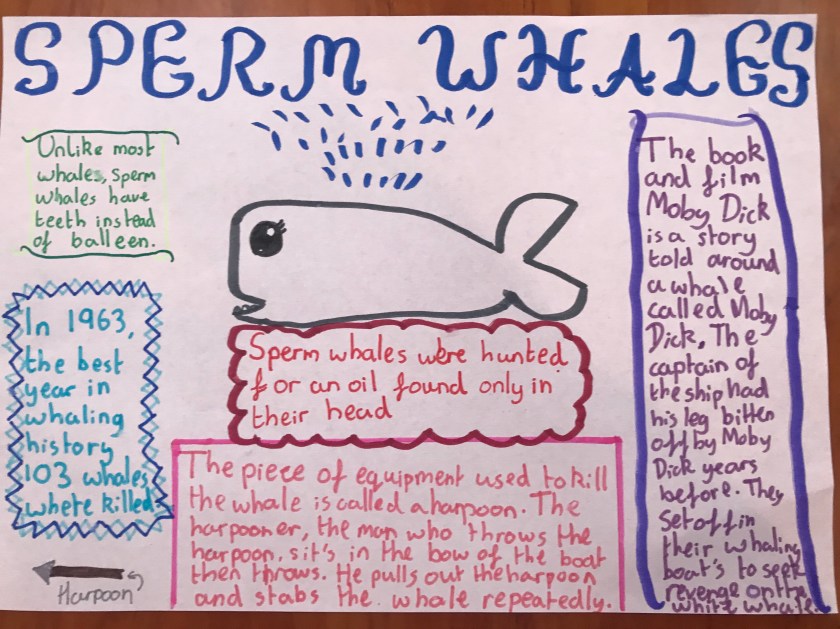 SPERM WHALES
Unlike most
whales, sperm
whales have
teeth instead
of balleen.
In 1963,
the best
year in
whaling
history
103 whales
where killed
Harpoon
Sperm whales were hunted
for an oil found only in
their head
The piece of equipment used to kill
the whale is called a harpoon. The
harpooner, the man who throws the
harpoon, sit's in the bow of the boat
then throws. He pulls out the harpoon
and stabs the whale repeatedly.
The book
and film
Moby Dick
is a story
told around
a whale
called Moby
Dick. The
captain of
the ship had
his leg bitten
off by Moby
Dick years
before. They
set off in
their whaling
boat's to seek
revenge on the
white whale.